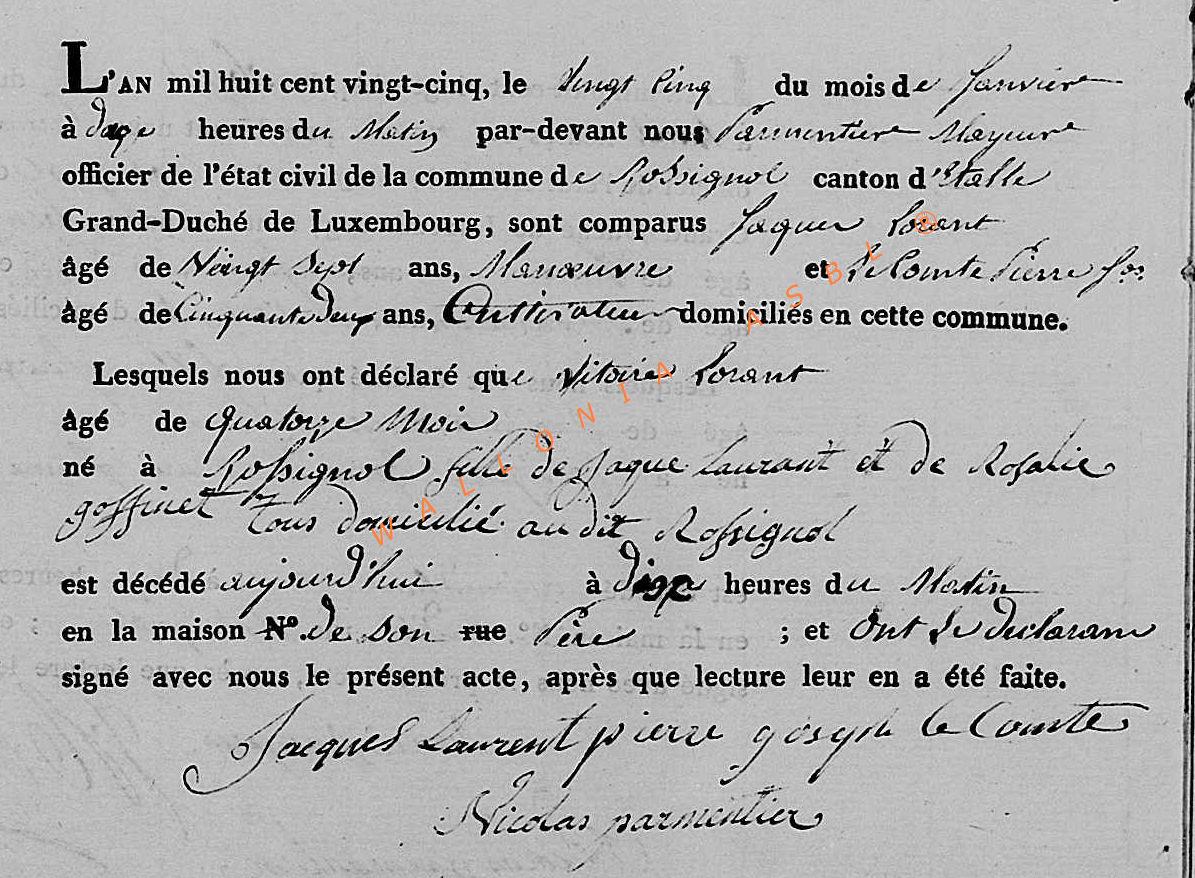 L'AN mil huit cent vingt-cinq, le Vingt Cinq du mois de Janvier
à heures du Matin par-devant nous Parmentier Mayeur
officier de l'état civil de la commune de Rossignol canton d'Etalle
Grand-Duché de Luxembourg, sont comparus Jaques Lorant
âgé de Vingt Sept ans, Manœuvre et Le Comte Pierre Jos
âgé de Cinquante deux ans, Cultivateur domiciliés en cette commune.
Lesquels nous ont déclaré que Vitoire Lorant
âgé de quatorze Mois
né à Rossignol fille de Jaque Laurant et de Rosalie
goffinet tous domicilié au dit Rossignol
est décédé aujourd'hui à heures du Matin
en la maison N°. de son rue Père ; et Ont le declarant
signé avec nous le présent acte, après que lecture leur en a été faite.
Jacques Laurent pierre joseph le Comte
Nicolas parmentier
WALLONIA ASBL ©